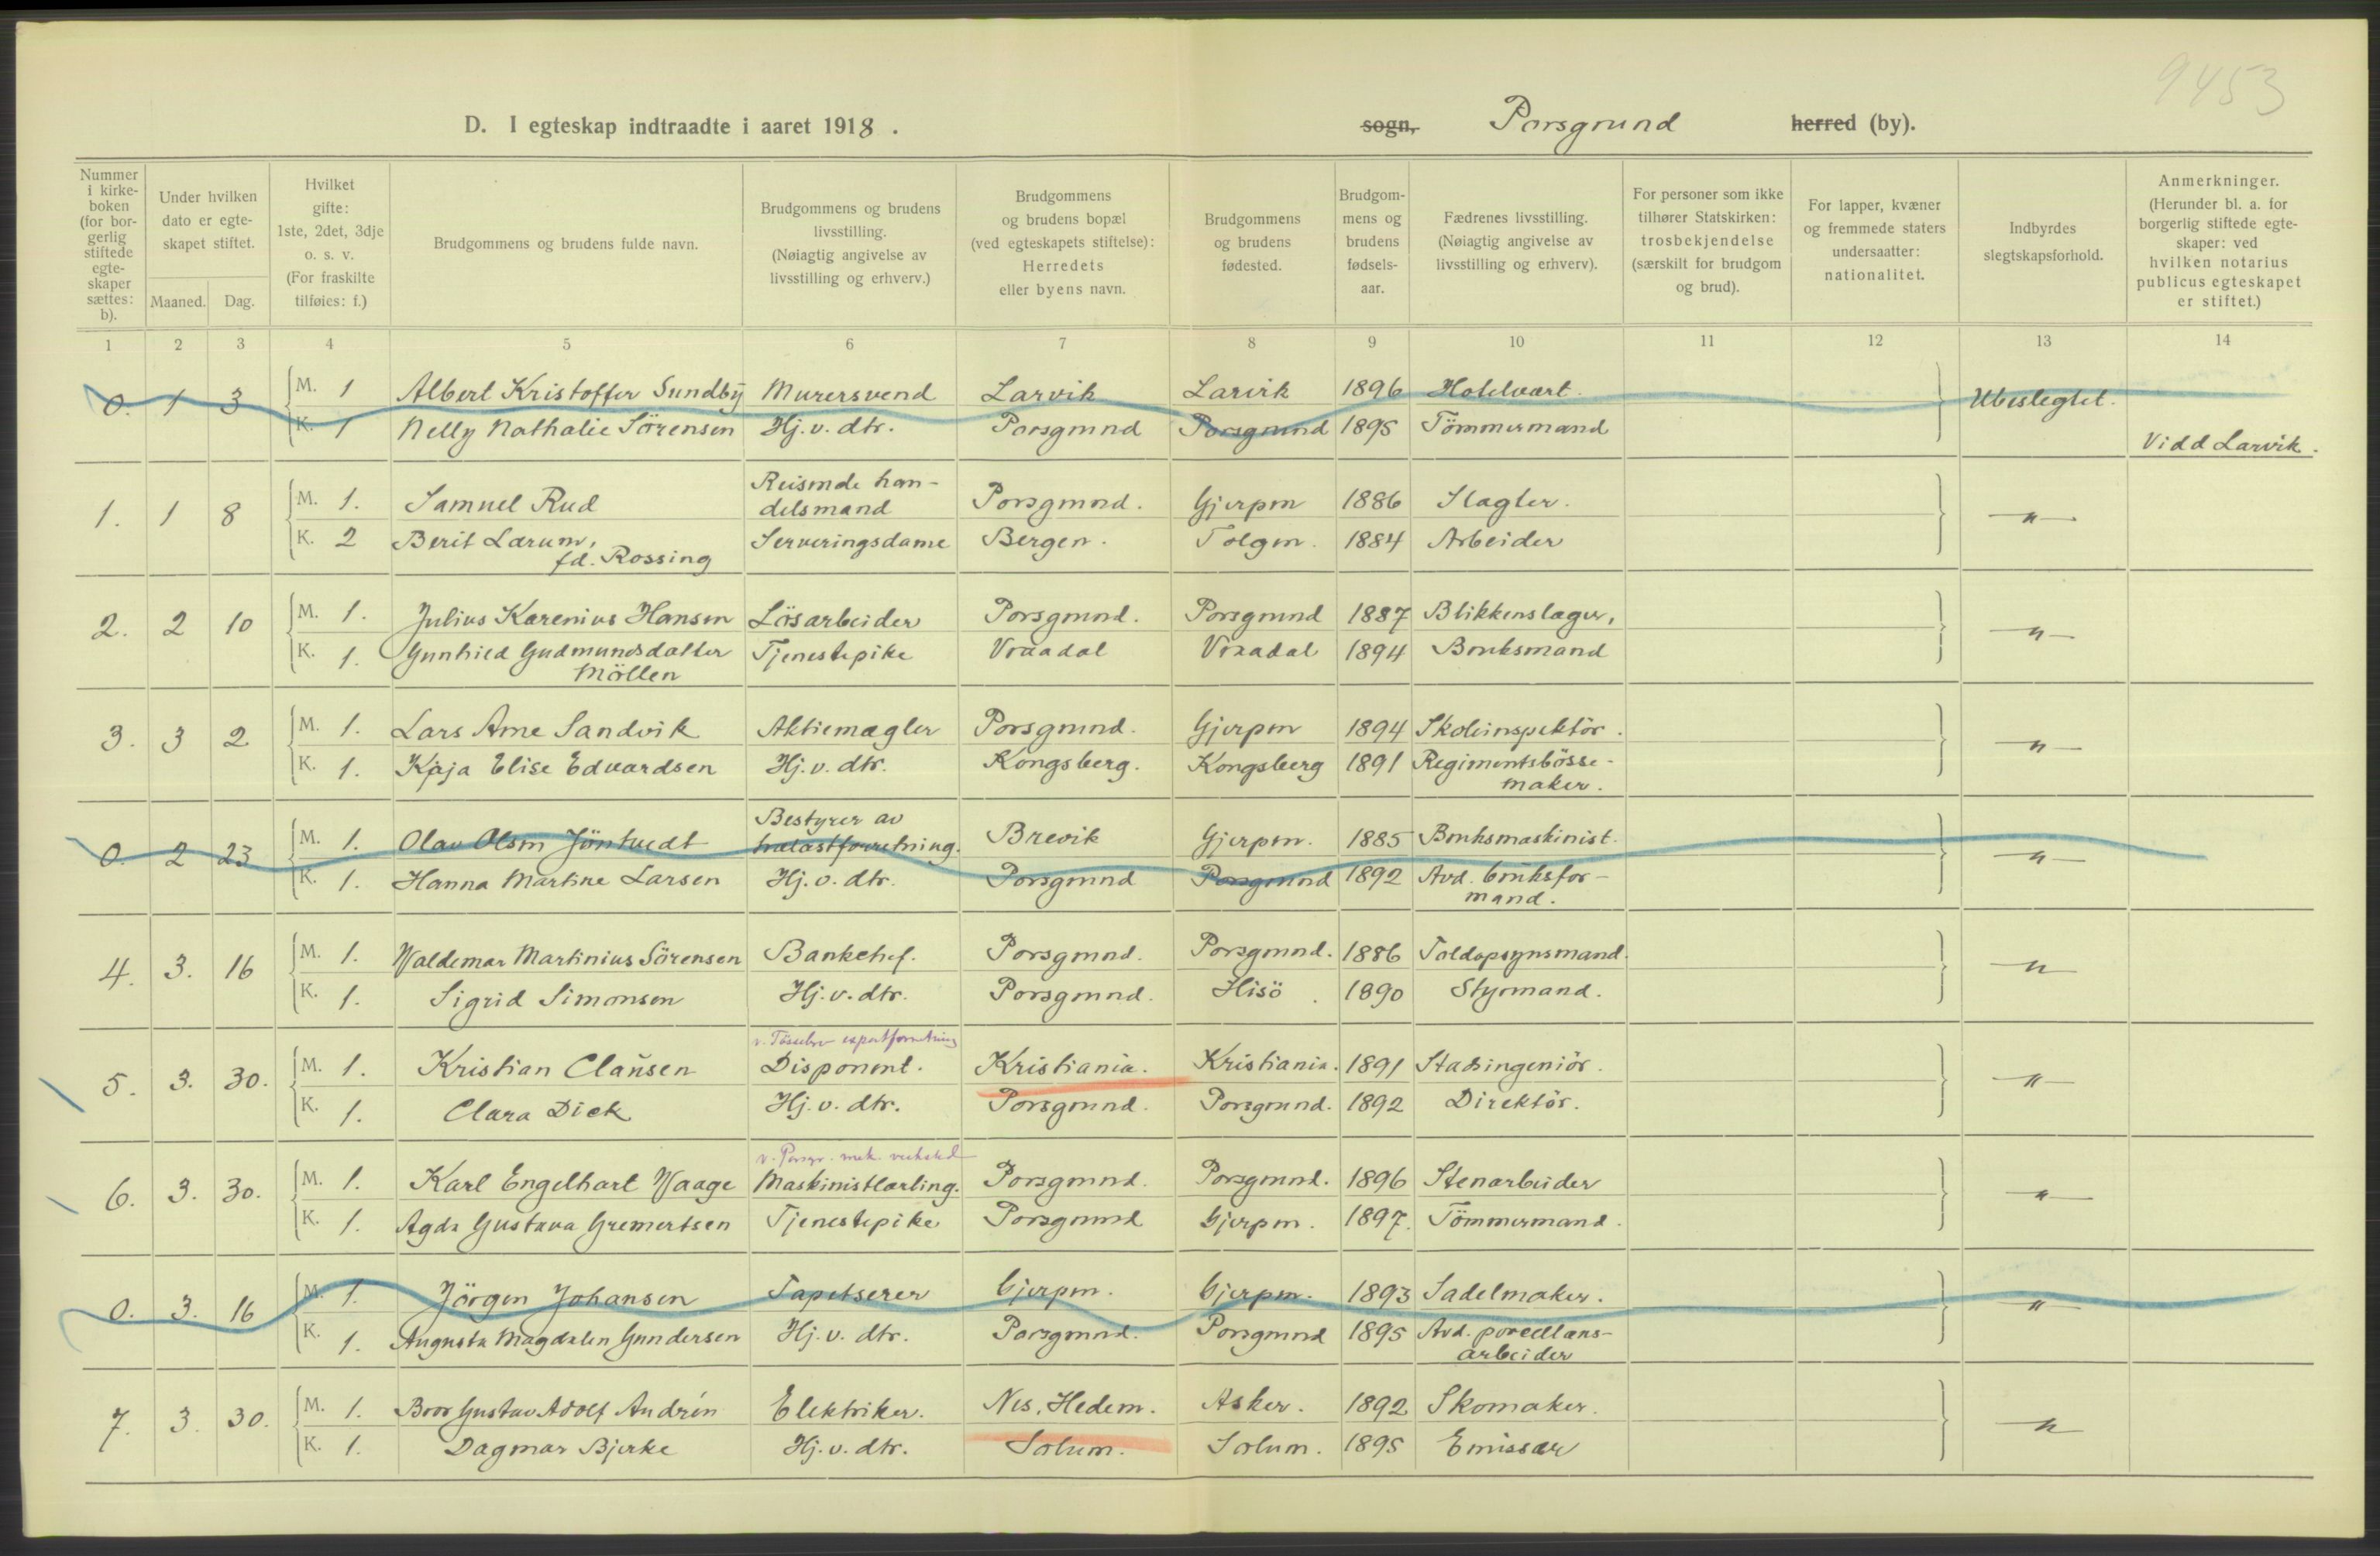 9453
D. I egteskap indtraadte i aaret 1918.
sogn, Porsgrund herred (by).
Nummer i kirkeboken (for borgerlig stiftede egteskaper sættes: b).
Under hvilken dato er egteskapet stiftet.
Maaned. Dag.
Hvilket gifte: 1ste, 2det, 3dje o. s. v. (For fraskilte tilføies: f.)
Brudgommens og brudens fulde navn.
Brudgommens og brudens livsstilling. (Nøiagtig angivelse av livsstilling og erhverv.)
Brudgommens og brudens bopæl (ved egteskapets stiftelse): Herredets eller byens navn.
Brudgommens og brudens fødested.
Brudgommens og brudens fødselsaar.
Fædrenes livsstilling. (Nøiagtig angivelse av livsstilling og erhverv).
For personer som ikke tilhører Statskirken: trosbekjendelse (særskilt for brudgom og brud).
For lapper, kvæner og fremmede staters undersaatter: nationalitet.
Indbyrdes slegtskapsforhold.
Anmerkninger. (Herunder bl. a. for borgerlig stiftede egteskaper: ved hvilken notarius publicus egteskapet er stiftet.)
1 2 3 4 5 6 7 8 9 10 11 12 13 14
0. 1 3 M. 1 Albert Kristoffer Sundby Murersvend Larvik Larvik 1896 Hotelvært. Ubeslegtet.
K. 1 Nelly Nathalie Sörensen Hj. v. dtr. Porsgrund Porsgrund 1895 Tömmermand Vidd Larvik.
1. 1 8 M. 1. Samuel Rud Reisende handelsmand Porsgrund. Gjerpen 1886 Slagter. -"-
K. 2 Berit Lærum, fd. Rossing Serveringsdame Bergen. Tolgen. 1884 Arbeider
2. 2 10 M. 1. Julius Karenius Hansen Lösarbeider Porsgrund. Porsgrund 1887 Blikkenslager, -"-
K. 1. Gunhild Gudmundsdatter Möllen Tjenestepike Vraadal Vraadal 1894 Bruksmand
3. 3 2 M. 1. Lars Arne Sandvik Aktiemægler Porsgrund. Gjerpen 1894 Skoleinspektör. -"-
K. 1. Kaja Elise Edvardsen Hj. v. dtr. Kongsberg. Kongsberg 1891 Regimentsbössemaker.
0. 2 23 M. 1. Olav Olsen Jöntvedt Bestyrer av trælastforretning. Brevik Gjerpen. 1885 Bruksmaskinist. -"-
K. 1. Hanna Martine Larsen Hj. v. dtr. Porsgrund Porsgrund 1892 Avd. bruksformand.
4. 3. 16 M. 1. Waldemar Martinius Sörensen Bankchef. Porsgrund. Porsgrund. 1886 Toldopsynsmand. -"-
K. 1. Sigrid Simonsen Hj. v. dtr. Porsgrund. Hisö. 1890 Styrmand.
v. exportforretning
5. 3. 30. M. 1. Kristian Clausen Disponent. Kristiania. Kristiania. 1891 Stadsingeniör. -"-
K. 1. Clara Dick Hj. v. dtr. Porsgrund. Porsgrund. 1892 Direktör.
v. Porsgr. mek. verksted
6. 3. 30. M. 1. Karl Engelhart Waage Maskinistlærling. Porsgrund. Porsgrund. 1896 Stenarbeider -"-
K. 1. Agda Gustava Gremertsen Tjenestepike Porsgrund Gjerpen. 1897. Tömmermand.
0. 3. 16 M. 1. Jörgen Johansen Tapetserer Gjerpen. Gjerpen. 1893 Sadelmaker. -"-
K. 1. Augusta Magdalen Gundersen Hj. v. dtr. Porsgrund. Porsgrund 1895 Avd. porcellænsarbeider
7. 3. 30. M. 1. Bror Gustav Adolf Andrén Elektriker. Nes, Hedem. Asker. 1892 Skomaker. -"-
K. 1. Dagmar Bjerke Hj. v. dtr. Solum. Solum. 1895 Emissær